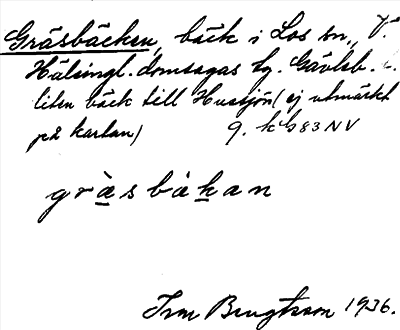 Gräsbäcken, bäck i Los sn., V.
Hälsingl. domsagas tg. Gävleb. l.
liten bäck till Hussjön (ej utmärkt
på kartan) 9. kb 83 NV
gràsbàkan
Ivar Bengtsson 1936.